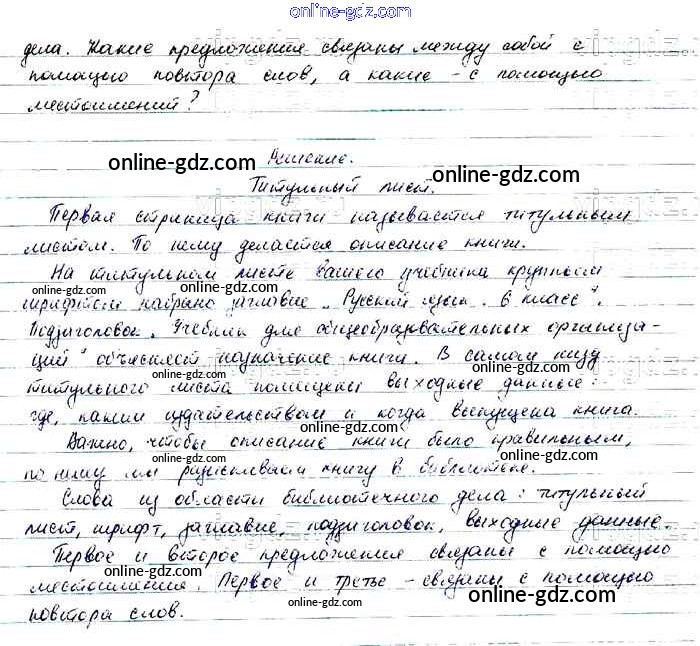 online-gdz.com
дела. Какие предложения связаны между собой с
помощью повтора слов, а какие - с помощью
местоимений?
Решение.
online-gdz.com
online-gdz.com
Титульный лист.
Первая страница книги называется титульным
листом. По нему делается описание книги.
На титульном листе вашего учебника крупным
шрифтом набрано заглавие „Русский язык. 6 класс".
Подзаголовок „Учебник для общеобразовательных организа-
ций" объясняет назначение книги. В самом низу
титульного листа помещены выходные данные:
где, каким издательством и когда выпущена книга.
Важно, чтобы описание книги было правильным,
по нему мы разыскиваем книгу в библиотеке.
Слова из области библиотечного дела: титульный
лист, шрифт, заглавие, подзаголовок, выходные данные.
Первое и второе предложения связаны с помощью
местоимения. Первое и третье - связаны с помощью
повтора слов.
online-gdz.com
online-gdz.com
online-gdz.com